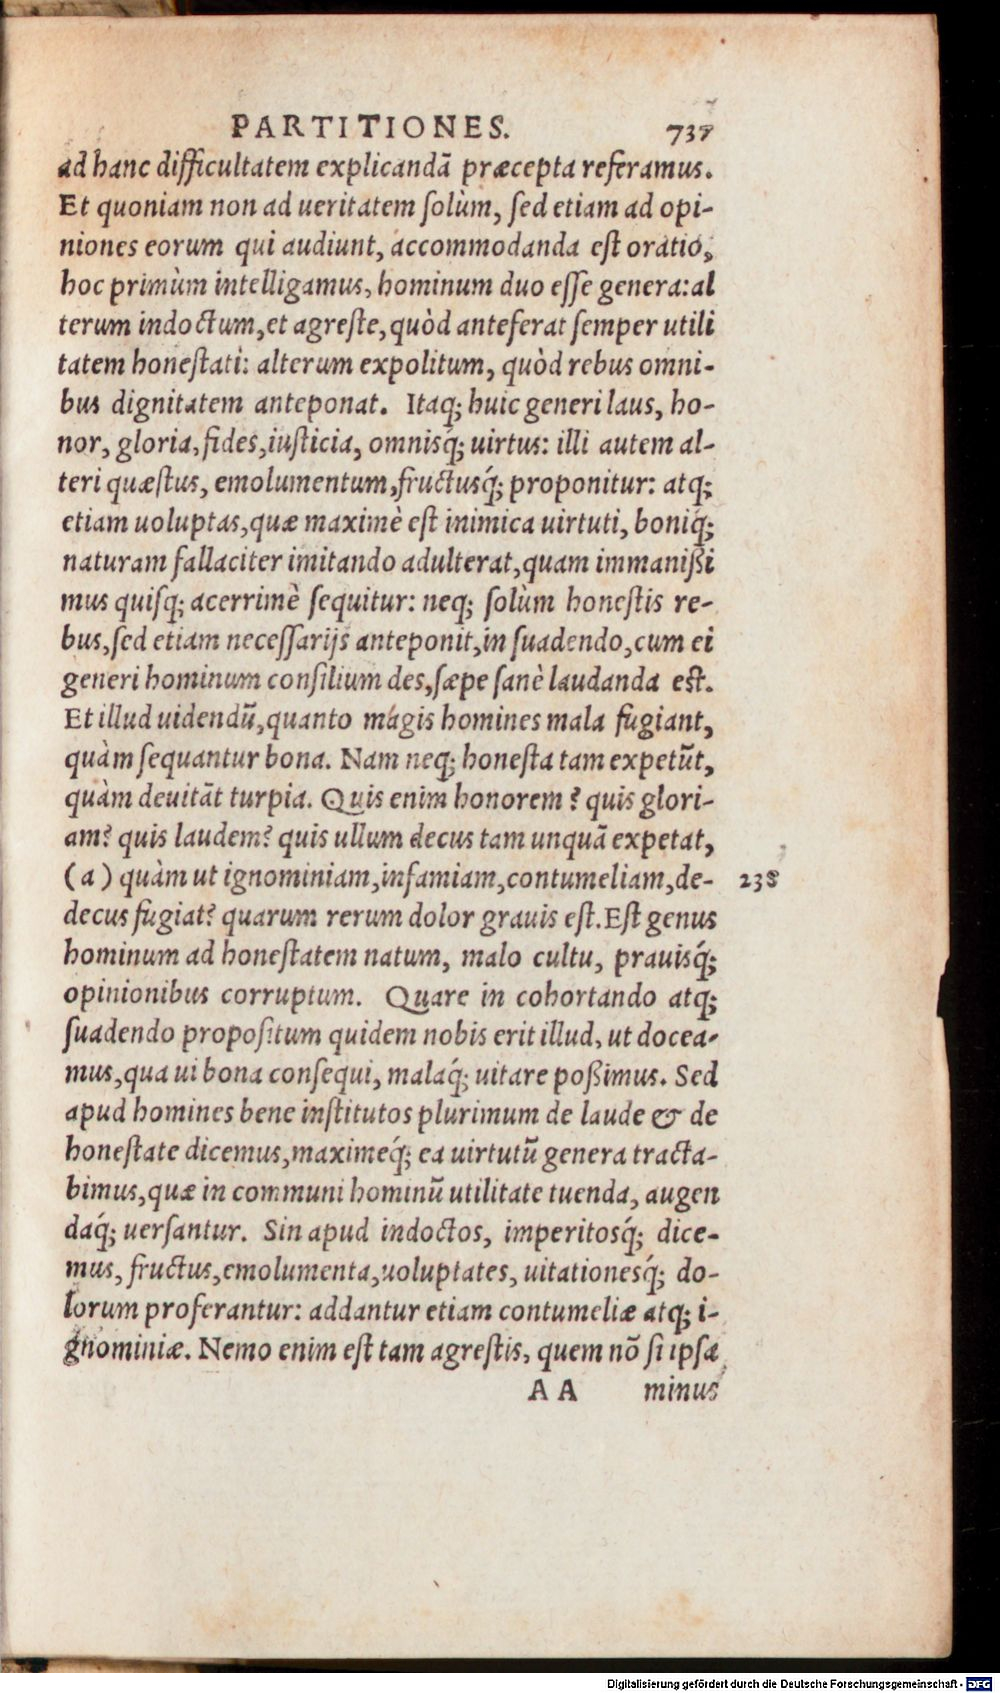 PARTITIONES. 737
ad hanc difficultatem explicandā præcepta referamus.
Et quoniam non ad ueritatem ſolùm, ſed etiam ad opi-
niones eorum qui audiunt, accommodanda eſt oratio,
hoc primùm intelligamus, hominum duo eſſe genera: al
terum indoctum, et agreſte, quòd anteferat ſemper utili
tatem honeſtati: alterum expolitum, quòd rebus omni-
bus dignitatem anteponat. Itaq; huic generi laus, ho-
nor, gloria, fides, iuſticia, omnisq́; uirtus: illi autem al-
teri quæſtus, emolumentum, fructusq́; proponitur: atq;
etiam uoluptas, quæ maximè eſt inimica uirtuti, boniq́;
naturam fallaciter imitando adulterat, quam immanißi
mus quiſq; acerrimè ſequitur: neq; ſolùm honeſtis re-
bus, ſed etiam neceſſarijs anteponit, in ſuadendo, cum ei
generi hominum conſilium des, ſæpe ſanè laudanda eſt.
Et illud uidendū, quanto magis homines mala fugiant,
quàm ſequantur bona. Nam neq; honeſta tam expetūt,
quàm deuitāt turpia. Quis enim honorem? quis glori-
am? quis laudem? quis ullum decus tam unquā expetat,
(a) quàm ut ignominiam, infamiam, contumeliam, de- 238
decus fugiat? quarum rerum dolor grauis eſt. Eſt genus
hominum ad honeſtatem natum, malo cultu, prauisq́;
opinionibus corruptum. Quare in cohortando atq;
ſuadendo propoſitum quidem nobis erit illud, ut docea-
mus, qua ui bona conſequi, malaq́; uitare poßimus. Sed
apud homines bene inſtitutos plurimum de laude & de
honeſtate dicemus, maximeq́; ea uirtutū genera tracta-
bimus, quæ in communi hominū utilitate tuenda, augen
daq́; uerſantur. Sin apud indoctos, imperitosq́; dice-
mus, fructus, emolumenta, uoluptates, uitationesq́; do-
lorum proferantur: addantur etiam contumeliæ atq; i-
gnominiæ. Nemo enim eſt tam agreſtis, quem nō ſi ipſa
AA minus
Digitalisierung gefördert durch die Deutsche Forschungsgemeinschaft - DFG